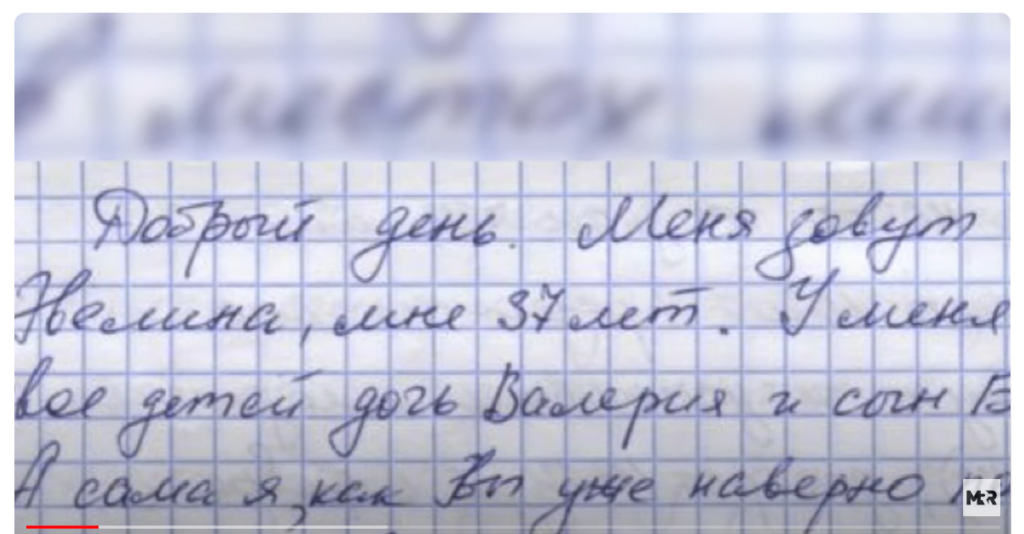 Добрый день. Меня зовут
Эвелина, мне 37 лет. У меня
вое детей дочь Валерия и сын
А сама я, как Вы уже наверно